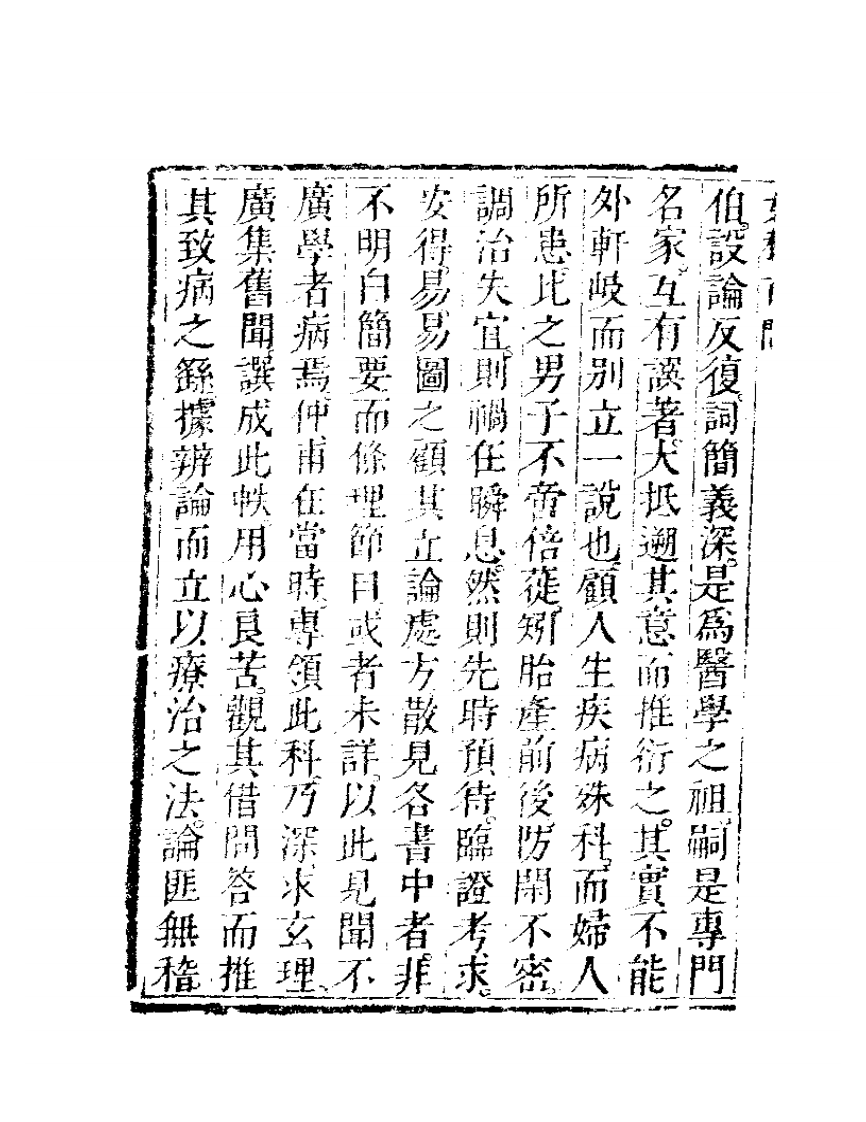 伯。設論反復。詞簡義深。是爲醫學之祖。嗣是專門
名家。互有譔著。大抵遡其意而推衍之。其實不能
外軒岐而別立一說也。顧人生疾病殊科。而婦人
所患。比之男子不啻倍蓰。矧胎產前後。防閑不密。
調治失宜。則禍在瞬息。然則先時預待。臨證考求。
安得易易圖之。顧其立論處方散見各書中者。非
不明白簡要。而條理節目。或者未詳。以此見聞不
廣。學者病焉。仲甫在當時。專領此科。乃深求玄理。
廣集舊聞。譔成此帙。用心良苦。觀其借問答而推
其致病之繇。據辨論而立以療治之法。論匪無稽。